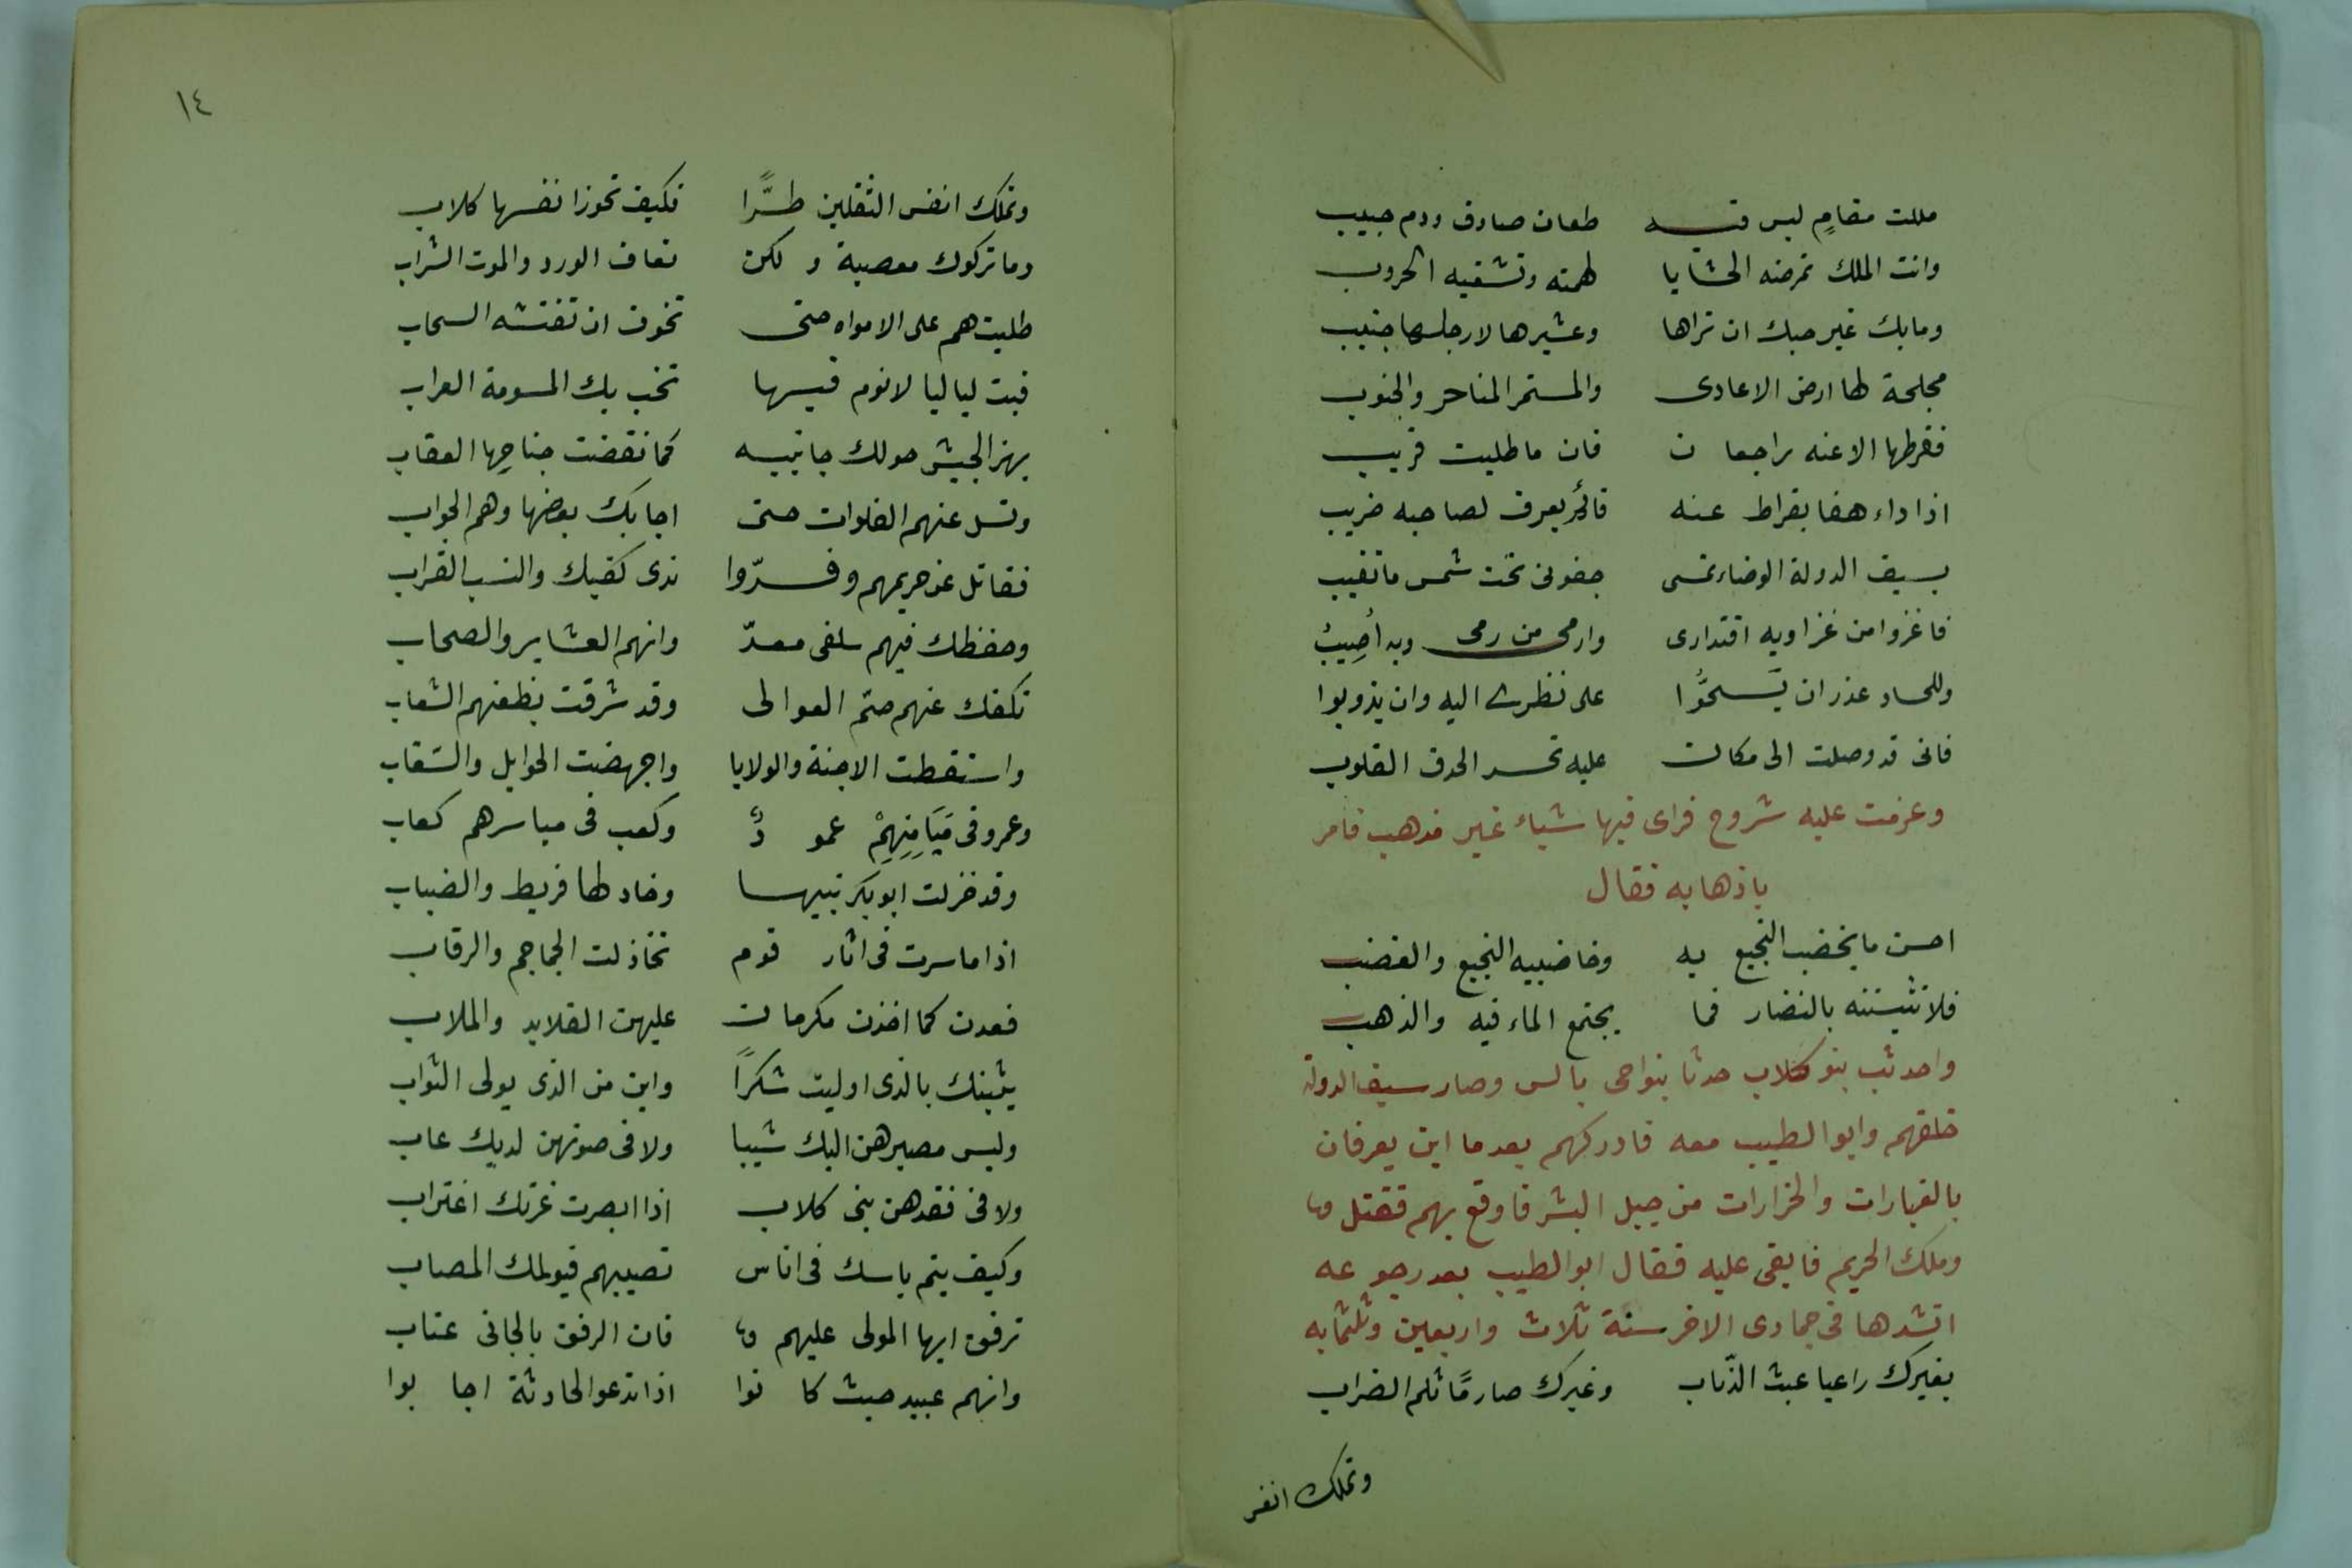 مللت مقامٍ ليس فيه طعان صادق ودم صبيب
وانت الملك تمرضه الحشايا لهمته وتشفيه الحروب
ومابك غير حبك ان تراها وعثيرها لارجلها جنيب
مجلحة لها ارض الاعادى والسمر المناحر والجنوب
فقرطها الاعنه راجعا ت فان ما طلبت قريب
اذا داء هفا بقراط عنه فلم يعرف لصاحبه ضريب
بسيف الدولة الوضاء تمسى جفونى تحت شمس ما تغيب
فاغزوا من غزا وبه اقتدارى وارمى من رمى وبه أصيبُ
وللحساد عذر ان يَشحُّوا على نظرى اليه وان يذوبوا
فانى قد وصلت الى مكان عليه تحسد الحدق القلوب
وعرضت عليه سروج فراى فيها شياء غير مذهب فامر
باذهابه فقال
احسن ما يخضب النجيع به وخاضبيه النجيع والغضب
فلا تشيننه بالنضار فما يجتمع الماء فيه والذهب
واحدثت بنو كلاب حدثا بنواحى بالس وصار سيف الدولة
خلفهم وابو الطيب معه فادركهم بعد ما اين يعرفان
بالغبارات والخرارات من جبل البشر فاوقع بهم فقتل
وملك الحريم فابقى عليه فقال ابو الطيب بعد رجوعه
انشدها فى جمادى الاخر سنة ثلاث واربعين وثلثمايه
بغيرك راعيا عبث الذئاب وغيرك صارمًا ثلم الضراب
وتملك انفس
١٤
وتملك انفس الثقلين طرًّا فكيف تحوز انفسها كلاب
وما تركوك معصية و لكن تعاف الورد والموت الشراب
طلبتهم على الامواه حتى تخوف ان تفتشه السحاب
فبت لياليا لا نوم فيها تخب بك المسومة العراب
يهز الجيش حولك جانبيه كما نفضت جناحها العقاب
وتسل عنهم الفلوات حتى اجابك بعضها وهم الجواب
فقاتل عن حريمهم وفرّوا ندى كفيك والنسب القراب
وحفظك فيهم سلفى معدّ وانهم العشاير والصحاب
تكفك عنهم صمّ العوالى وقد شرقت بظعنهم الشعاب
واسقطت الاجنة والولايا واجهضت الحوايل والسقاب
وعمرو فى مَيَامِنِهِمْ عمو دٌ وكعب فى مياسرهم كعاب
وقد خزلت ابو بكر بنيها وخاذلها قريط والضباب
اذا ما سرت فى اثار قوم تخاذلت الجماجم والرقاب
فعدن كما اخذن مكرمات عليهن القلايد والملاب
يثبنك بالذى اوليت شكراً واين من الذى يولى الثواب
وليس مصيرهن اليك شيبا ولا فى صونهن لديك عاب
ولا فى فقدهن بنى كلاب اذا ابصرت غرتك اغتراب
وكيف يتم باسك فى اناس تصيبهم فيولمك المصاب
ترفق ايها المولى عليهم فان الرفق بالجانى عتاب
وانهم عبيد حيث كا نوا اذا تدعو الحادثة اجا بوا